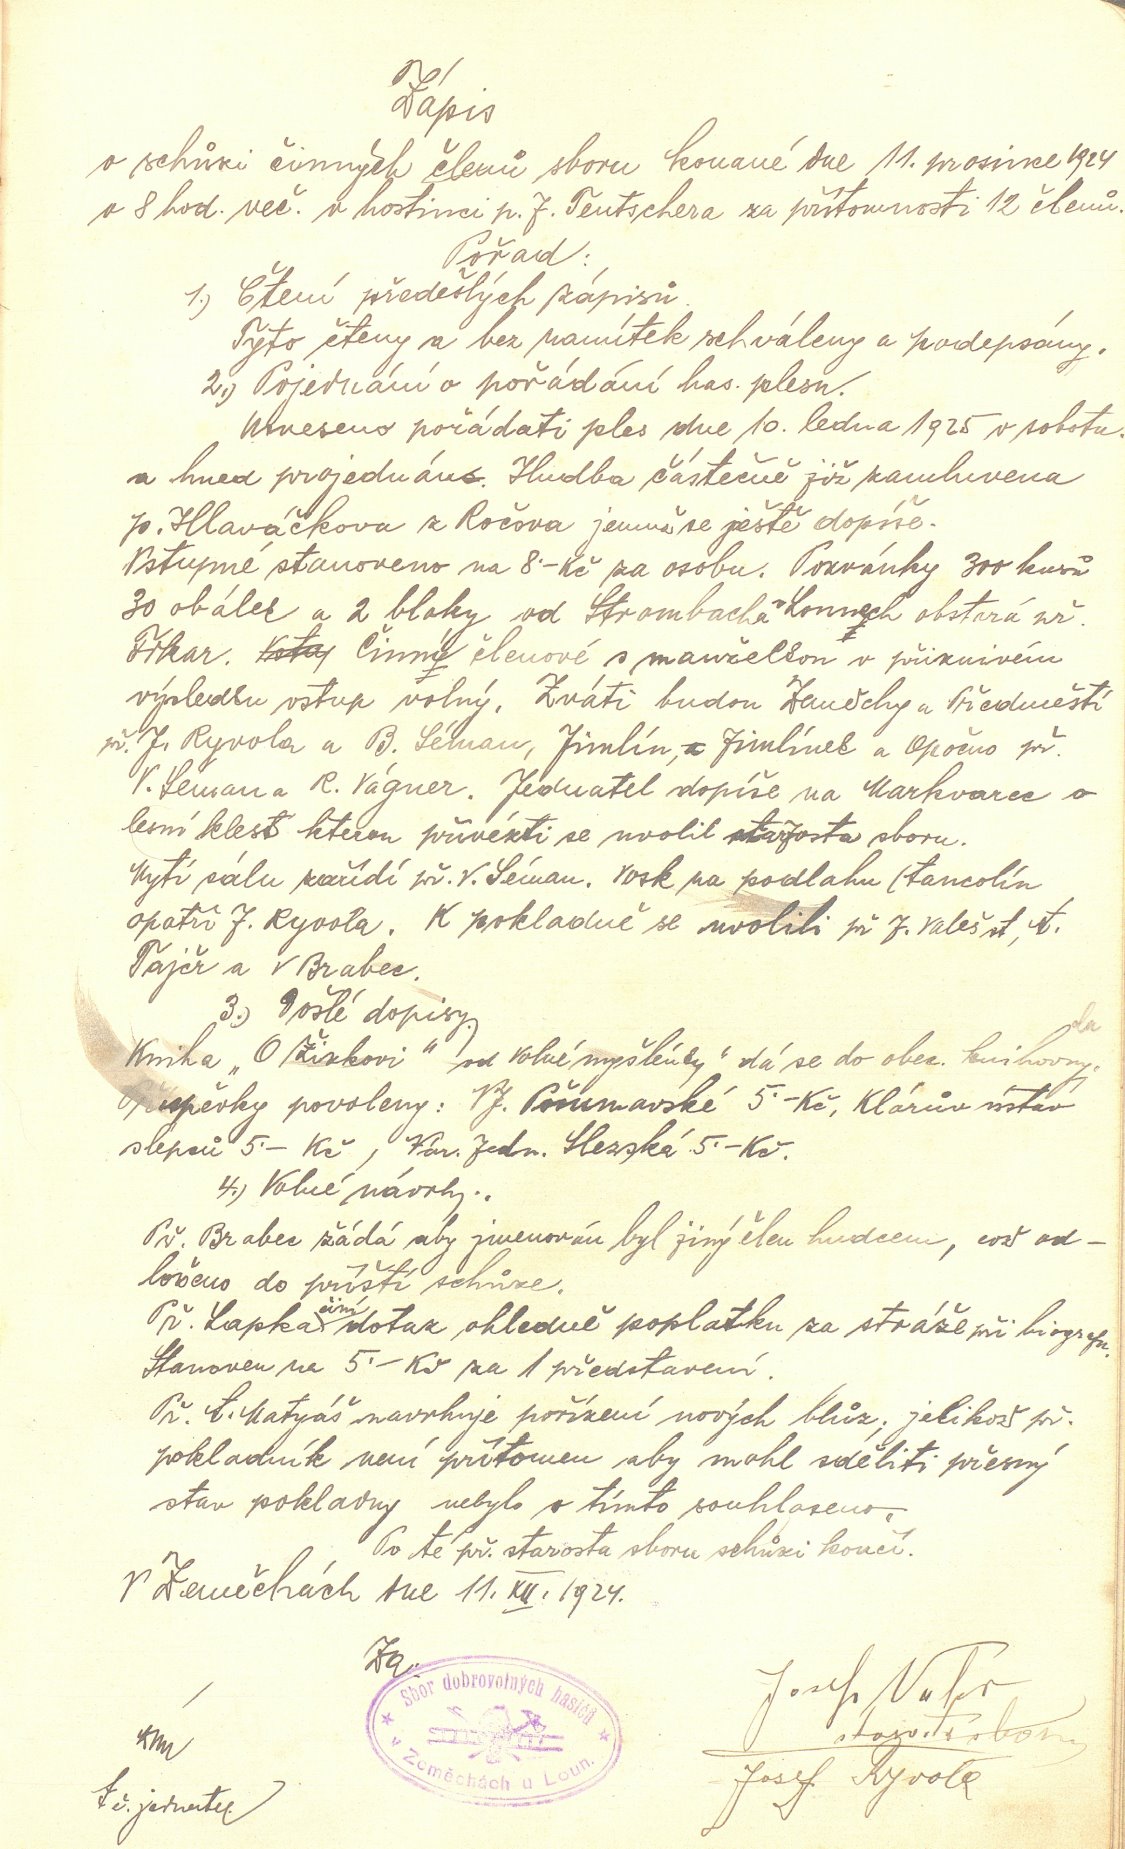 Zápis
o schůzi činných členů sboru konané dne 11. prosince 1924
o 8 hod. več. v hostinci p. J. Teutschera za přítomnosti 12 členů.
Pořad:
1.) Čtení předešlých zápisů.
Tyto čteny a bez namítek schváleny a podepsány.
2.) Pojednání o pořádání has. plesu.
Usneseno pořádati ples dne 10. ledna 1925 v sobotu.
a hned projednáno. Hudba částečně již zamluvena
p. Hlaváčkova z Ročova jemuž se ještě dopíše.
Vstupné stanoveno na 8·– Kč za osobu. Pozvánky 300 kusů
30 obálek a 2 bloky od Strombacha Lounech obstará př.
Fřkar. Činné členové s manželkou v příznivém
výsledku vstup volný. Zváti budou Zeměchy a Předměstí
př. J. Ryvola a B. Séman, Jimlín, Jimlínek a Opočno př.
V. Seman a R. Vágner. Jednatel dopíše na Markvarec o
lesní klest kterou přivézti se uvolil starosta sboru.
Mytí sálu zařídí př. V. Séman. Vosk na podlahu (tancolín
opatří J. Ryvola. K pokladně se uvolili př J. Valeš st, A.
Tajčr a V Brabec.
3.) Došlé dopisy.
Kniha „O Žižkovi" od Volné myšlénky" dá se do obec. knihovny.
Příspěvky povoleny: NJ. Pošumavské 5·– Kč, Klárův ústav
slepců 5·– Kč, Nár. Jedn. Slezská 5·– Kč.
4.) Volné návrhy.
Př. Brabec žádá aby jmenován byl jiný člen hudcem, což od–
ločeno do příští schůze.
Př. Lapka činí dotaz ohledně poplatku za stráže při biografu.
Stanoven na 5·– Kč za 1 představení.
Př. A. Matyáš navrhuje pořízení nových blůz, jelikož př.
pokladník není přítomen aby mohl sděliti přesný
stav pokladny nebylo s tímto souhlaseno.
Po té př. starosta sboru schůzi končí.
V Zeměchách dne 11. XII. 1924.
Za:
Sbor dobrovolných hasičů
v Zeměchách u Loun.
Josef Valeš
starosta sboru
Josef Ryvola
t č. jednatel